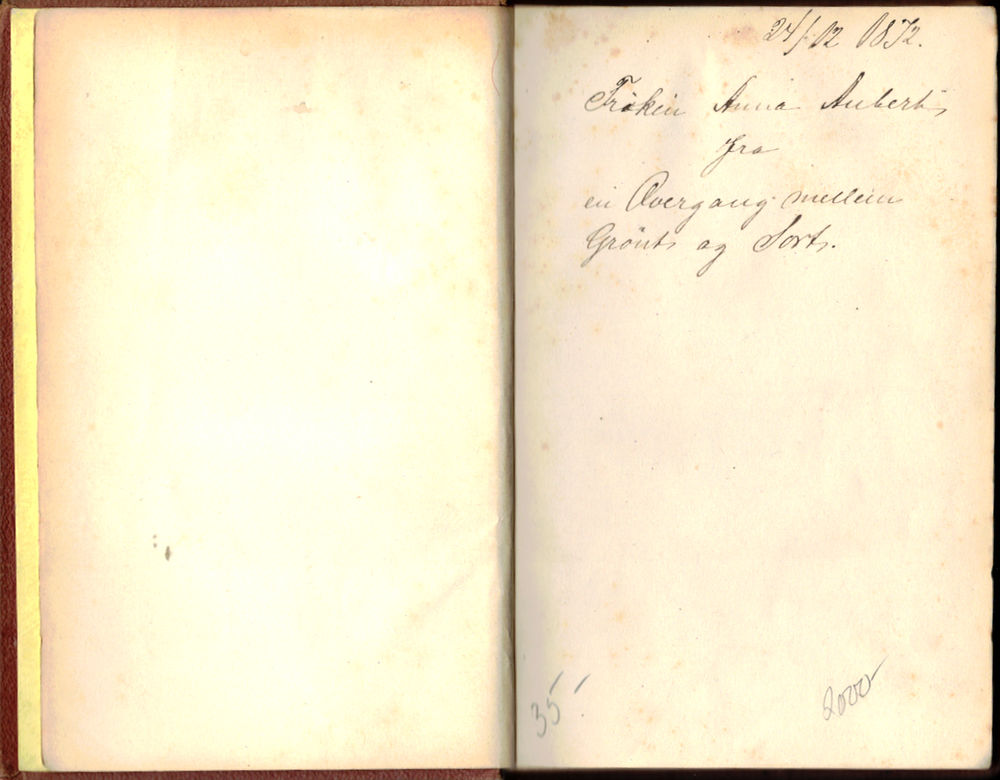 24/12 1872.
Fröken Anna Aubert,
fra
en Overgang mellem
Grönt og Sort.
35
2000